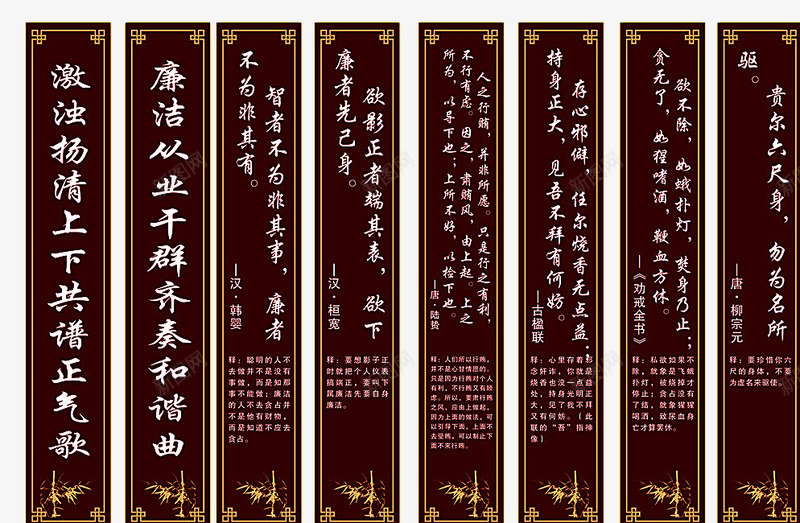 激浊扬清上下共谱正气歌
廉洁从业干群齐奏和谐曲
智者不为非其事，廉者
不为非其有。
—汉·韩婴
释：聪明的人不
去做并不是没有
事做，而是知那
事不能做；廉洁
的人不去贪占并
不是他有财物，
而是知道不应去
贪占。
欲影正者端其表，欲下
廉者先己身。
—汉·桓宽
释：要想影子正
时就把个人仪表
搞端正，要叫下
属廉洁先要自身
廉洁。
人之行贿，并非所愿。只是行之有利，
不行有虑。因之，肃贿风，由上起。上之
所为，以导下也；上所不好，以检下也。
—唐·陆贽
释：人们所以行贿，
并不是心甘情愿的。
只是因为行贿对个人
有利，不行贿又有顾
虑。所以，要肃行贿
之风，应由上做起。
因为上面的做法，可
以引导下面，上面不
去受贿，可以制止下
面不来行贿。
存心邪僻，任尔烧香无点益；
持身正大，见吾不拜有何妨。
—古楹联
释：心里
烧香也没一点益
处，持身光明正
大，见了我不拜
又有何妨。（此
联的“吾”指神
像）
欲不除，如蛾扑灯，焚身乃止；
贪无了，如猩嗜酒，鞭血方休。
—《劝戒全书》
释：私欲如果不
除，就象是飞蛾
扑灯，被烧掉才
停止；贪占没有
了结，就象猩猩
喝酒，致尿血身
亡才算罢休。
贵尔六尺身，勿为名所
驱。
—唐·柳宗元
释：要珍惜你六
尺的身体，不要
为虚名来驱使。